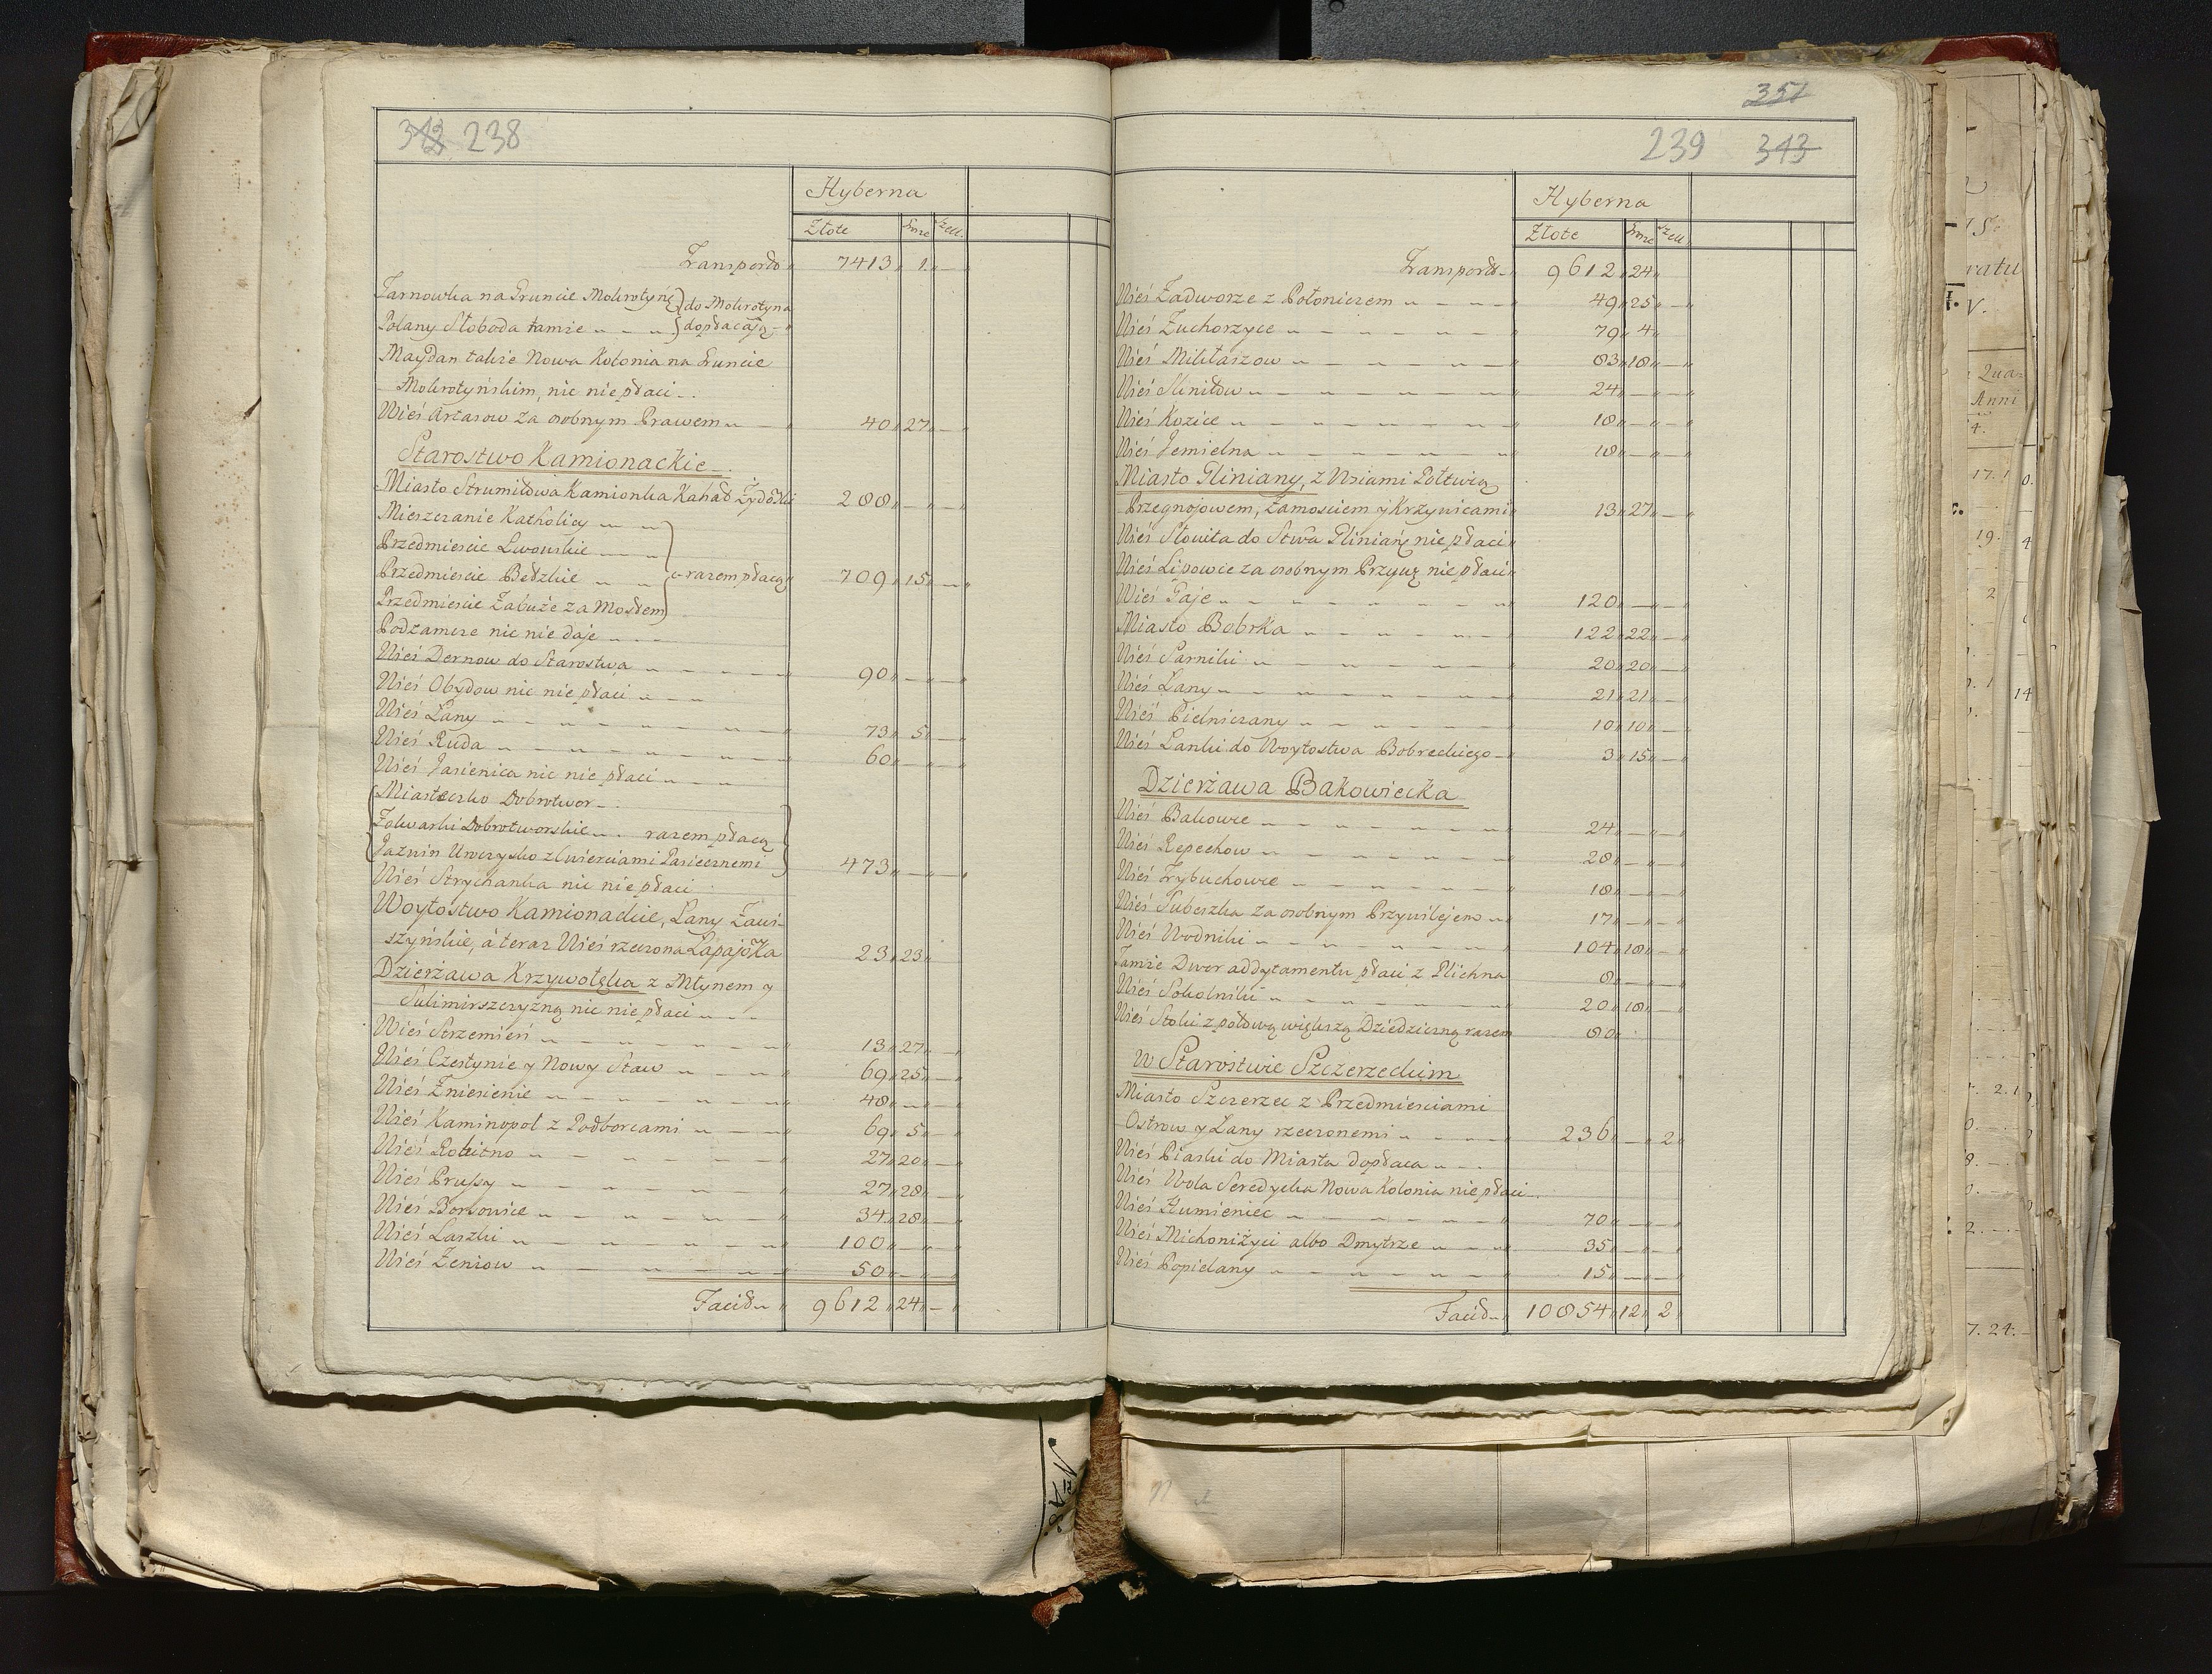 342 238
Hyberna
Złote Grosze Szel.
Transport 7413 1 —
Tarnowka na Gruncie Mokrotyń } do Mokrotyna
Polany Słoboda tamże } dopłacają
Maydan także Nowa Kolonia na Gruncie
Mokrotyńskim, nic nie płaci
Wieś Artasow za osobnym Prawem 40 27 —
Starostwo Kamionackie
Miasto Strumiłowa Kamionka Kahał Żydówki 288 — —
Mieszczanie Katholicy
Przedmieście Lwowskie
Przedmieście Bełzkie razem płacą 709 15 —
Przedmieście Zabuże za Mostem
Podzamcze nic nie daje
Wieś Dernow do Starostwa 90 — —
Wieś Obydow nic nie płaci
Wieś Lany 73 5 —
Wieś Ruda 60 — —
Wieś Jasienica nic nie płaci
Miasteczko Dobrotwor
Folwarki Dobrotworskie razem płacą
Jaznin Uwczysko z Cwierciami Pasiecznemi 473 — —
Wieś Strychanka nic nie płaci
Woytostwo Kamionackie, Lany Zawi-
szyńskie, à teraz Wieś rzeczona Łapajówka 23 23
Dzierżawa Krzywołęka z Młynem y
Sulimirszczyzną nic nie płaci
Wieś Strzemień 13 27 —
Wieś Czestynie y Nowy Staw 69 25 —
Wieś Zniesienie 48 — —
Wieś Kaminopol z Podborcami 69 5 —
Wieś Rokitno 27 20 —
Wieś Prussy 27 28 —
Wieś Borsowice 34 28 —
Wieś Laszki 100 — —
Wieś Zeniow 50 — —
Facit 9612 24 —
351
239 343
Hyberna
Złote Grosze Szell.
Transport 9612 24
Wieś Zadworze z Połoniczem 49 25 —
Wieś Zuchorzyce 79 4 —
Wieś Mikłaszow 83 18 —
Wieś Skniłow 24 — —
Wieś Kozice 18 — —
Wieś Jemielna 18 — —
Miasto Gliniany, z Wsiami Połtwią
Przegnojowem, Zamościem y Krzywicami 13 27 —
Wieś Słowita do Stwa Gliniań nie płaci
Wieś Lipowce za osobnym Przyw. nie płaci
Wieś Gaje 120 — —
Miasto Bobrka 122 22 —
Wieś Sarniki 20 20 —
Wieś Lany 21 21 —
Wieś Pietniczany 10 10 —
Wieś Lanki do Woytostwa Bobreckiego 3 15 —
Dzierżawa Bakowiecka
Wieś Bakowce 24 — —
Wieś Repechow 28 — —
Wieś Trybuchowce 18 — —
Wieś Tubeszka za osobnym Przywilejem 17 — —
Wieś Wodniki 104 18 —
Tamże Dwor addytamentu płaci z Plichna 8 — —
Wieś Sokolniki 20 18 —
Wieś Stoki z połową większą Dziedziczną razem 80
w Starostwie Szczerzeckim
Miasto Szczerzec z Przedmieściami
Ostrow y Lany rzeczonemi 236 — 2
Wieś Piaski do Miasta dopłaca
Wieś Wola Seredycka Nowa Kolonia nie płaci
Wieś Humieniec 70 — —
Wieś Michoniżyci albo Dmytrze 35 — —
Wieś Popielany 15 — —
Facit 10854 12 2